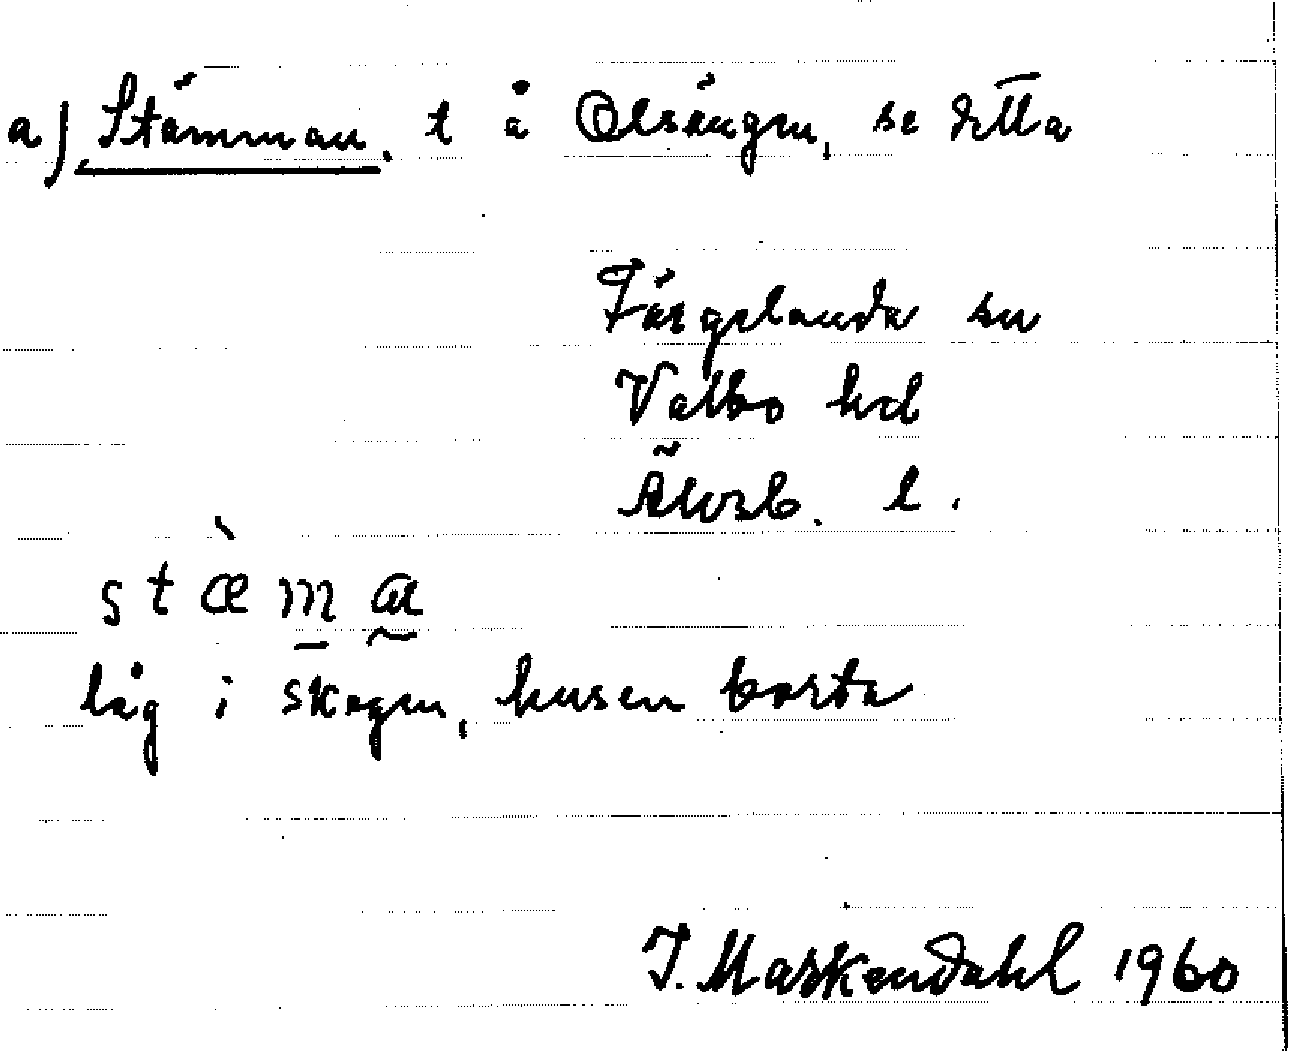 a) Stämman. t å Olsängen, se detta
Färgelanda sn
Valbo hd
Älvsb. l.
stæ̀ma
låg i skogen, husen borta
J. Markendahl 1960